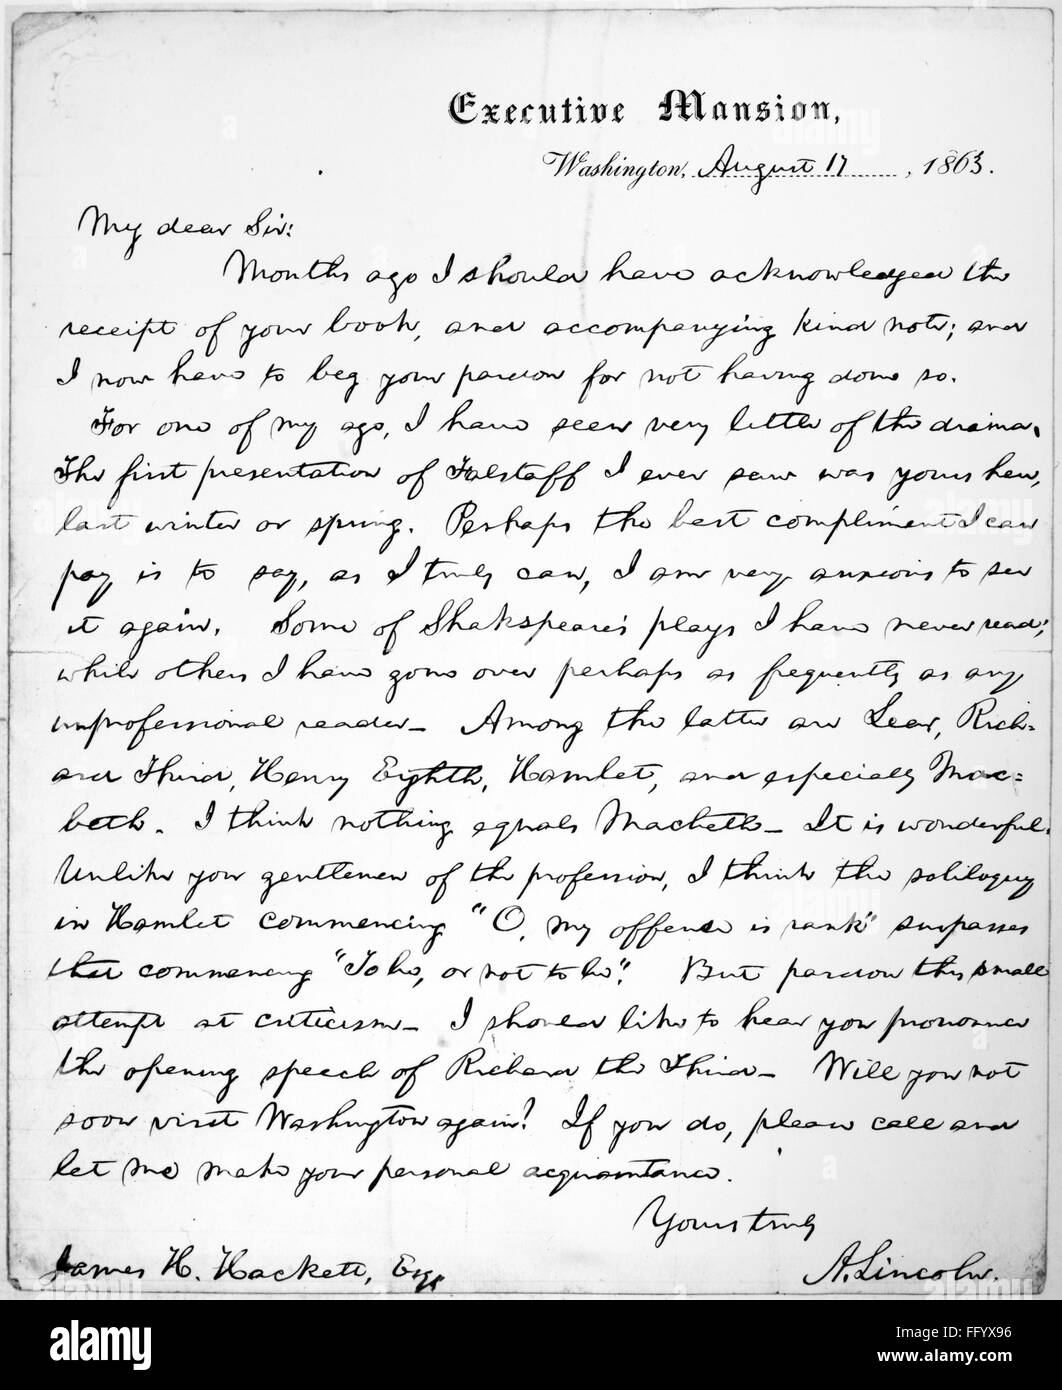 Executive Mansion,
Washington, August 17, 1863.
My dear Sir:
Months ago I should have acknowledged the
receipt of your book, and accompanying kind note; and
I now have to beg your pardon for not having done so.
For one of my age, I have seen very little of the drama.
The first presentation of Falstaff I ever saw was yours here,
last winter or spring. Perhaps the best compliment I can
pay is to say, as I truly can, I am very anxious to see
it again. Some of Shakspeare's plays I have never read;
while others I have gone over perhaps as frequently as any
unprofessional reader. Among the latter are Lear, Rich-
ard Third, Henry Eighth, Hamlet, and especially Mac=
beth. I think nothing equals Macbeth. It is wonderful.
Unlike you gentlemen of the profession, I think the soliloquy
in Hamlet commencing "O, my offence is rank" surpasses
that commencing "To be, or not to be". But pardon this small
attempt at criticism. I should like to hear you pronounce
the opening speech of Richard the Third. Will you not
soon visit Washington again? If you do, please call and
let me make your personal acquaintance.
Yours truly
James H. Hackett, Esq.
A. Lincoln.
alamy
Image ID: FFYX96
www.alamy.com